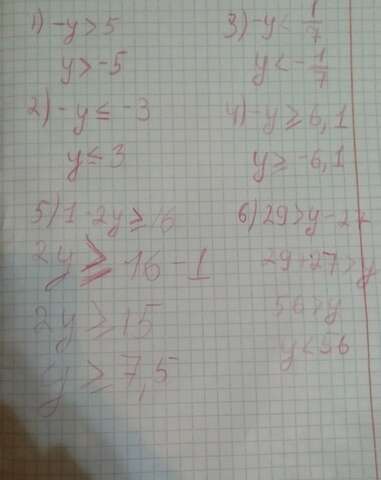 1) -y > 5
y > -5
2) -y ≤ -3
y ≤ 3
3) -y < 1/7
y < -1/7
4) -y ≥ 6,1
y ≥ -6,1
5) 1 - 2y ≥ 16
2y ≥ 16 - 1
2y ≥ 15
y ≥ 7,5
6) 29 > y - 27
29 + 27 > y
56 > y
y < 56